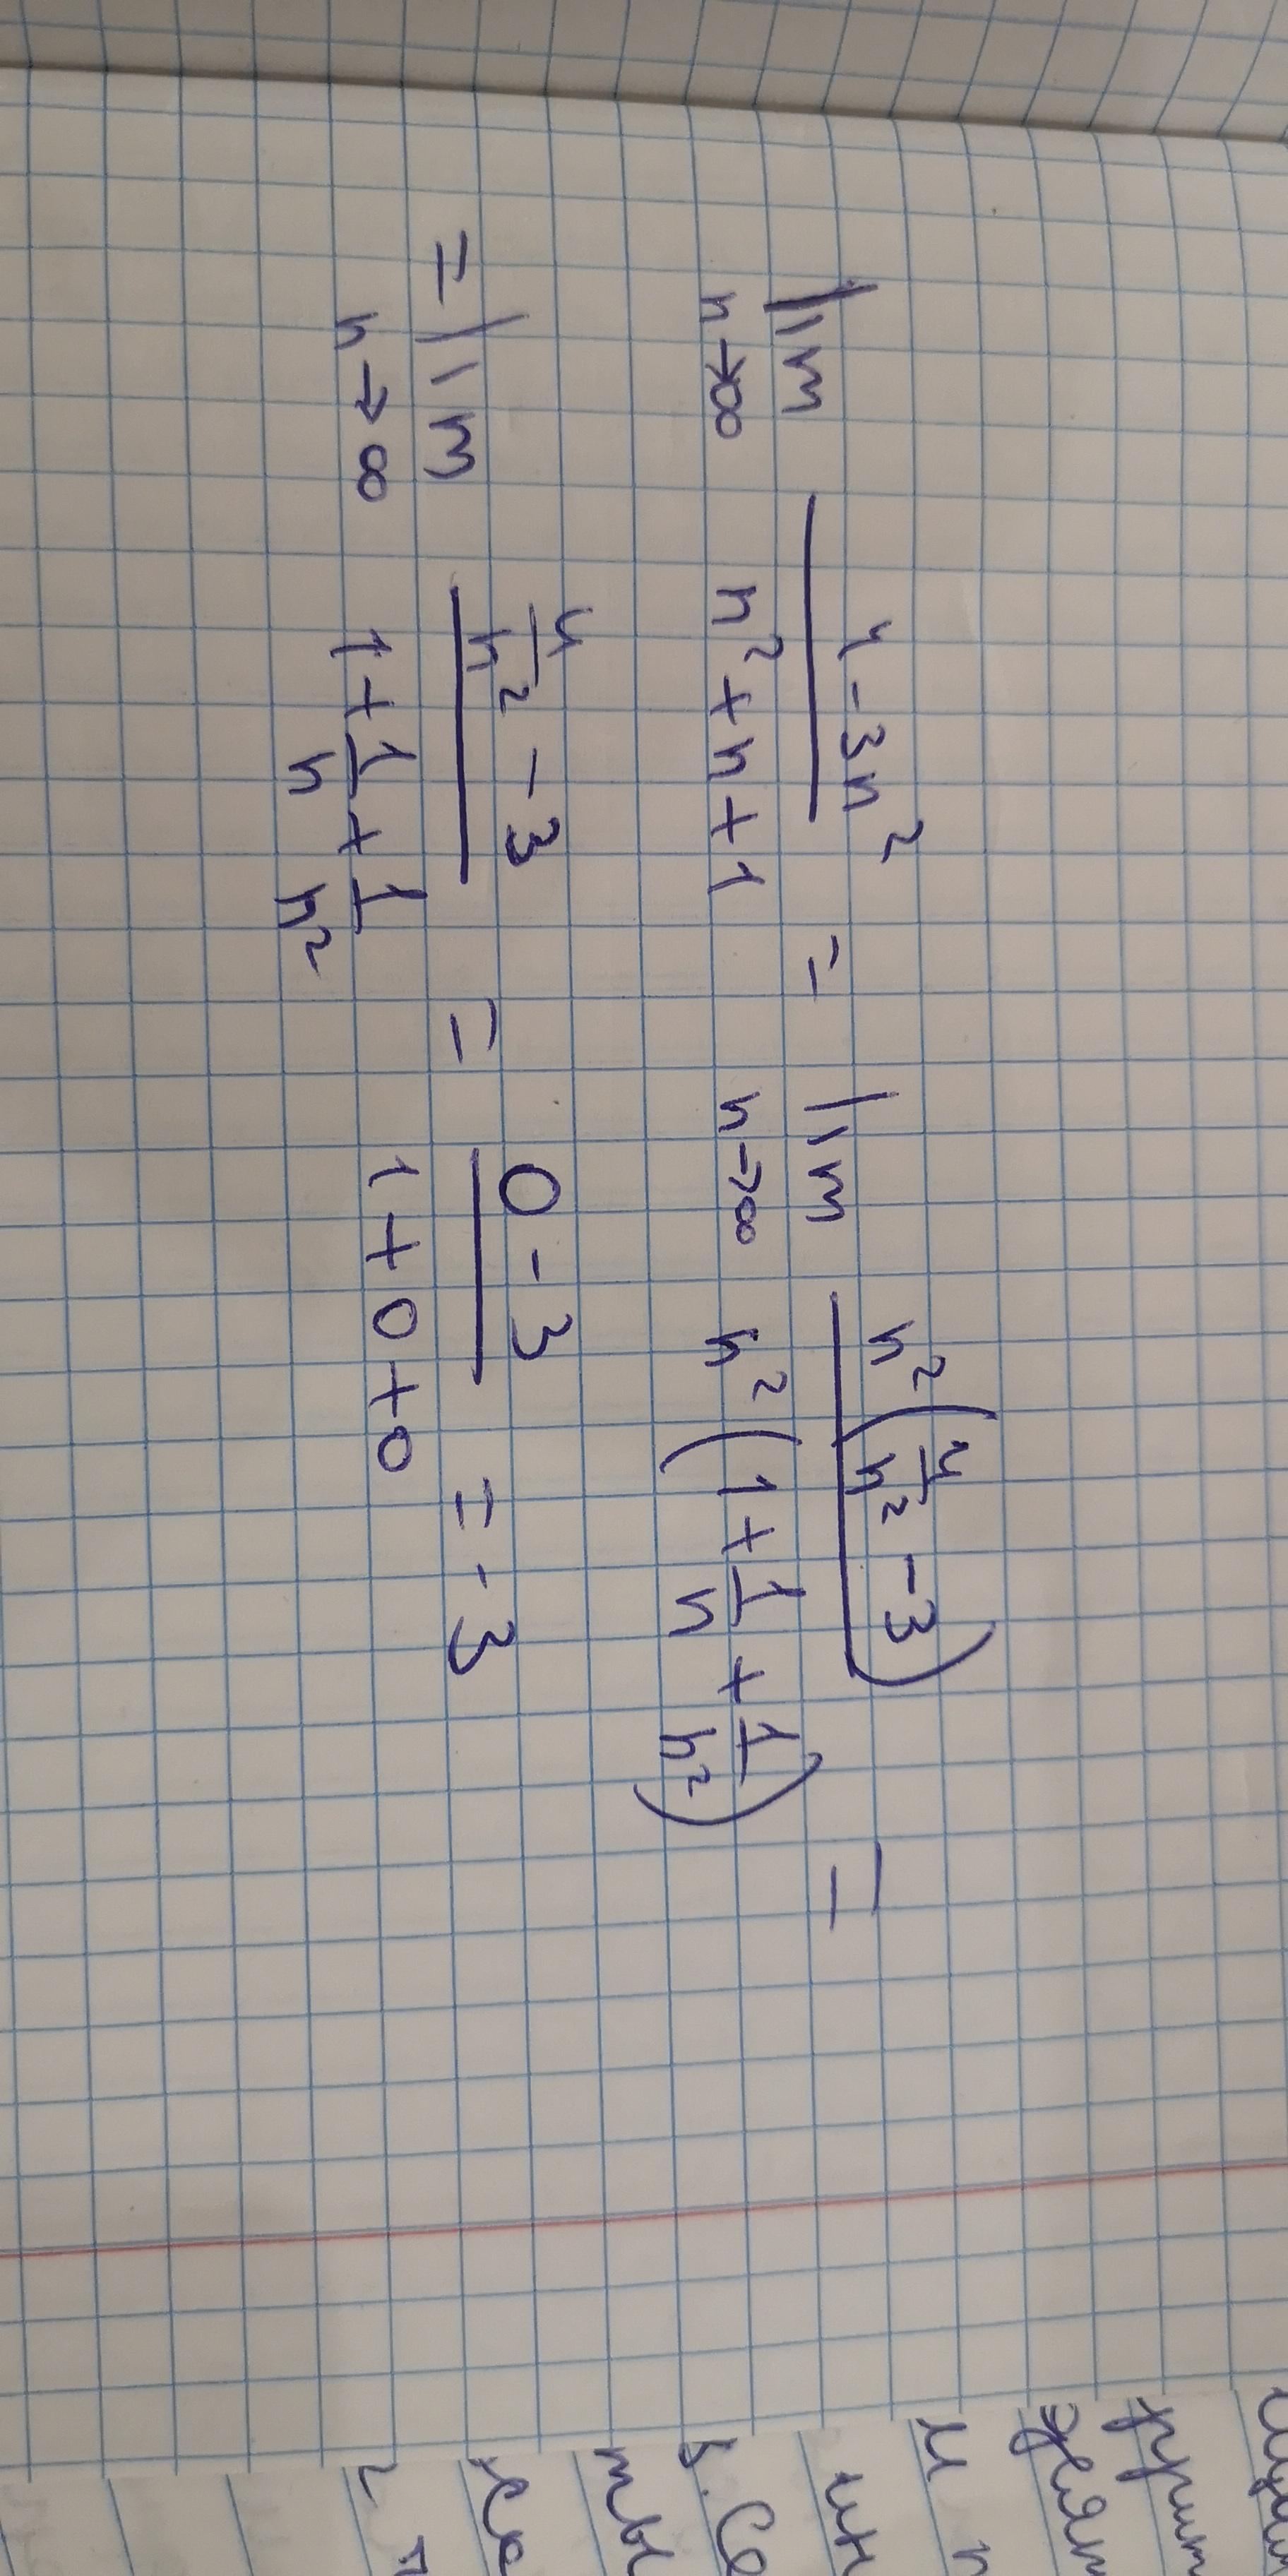 lim n→∞ (4-3n²)/(n²+n+1) = lim n→∞ (n²(4/n²-3))/(n²(1+1/n+1/n²)) =
= lim n→∞ (4/n²-3)/(1+1/n+1/n²) = (0-3)/(1+0+0) = -3